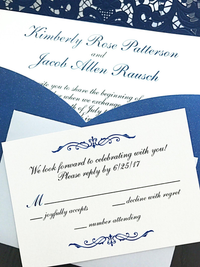 Kimberly Rose Patterson
and
Jacob Allen Rausch
you to share the beginning of
when we exchange
of July
We look forward to celebrating with you!
Please reply by 6/25/17
M
joyfully accepts
decline with regret
number attending